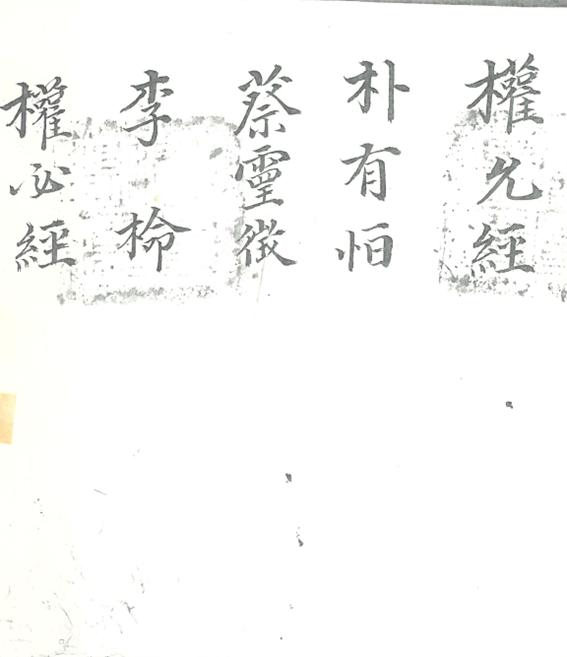 權允經
朴有恒
蔡靈徵
李棆
權必經